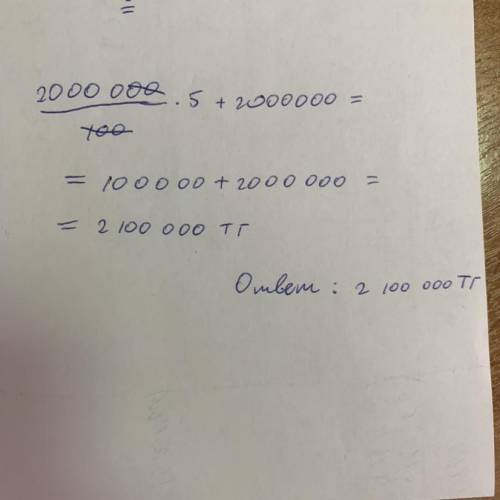 =
2000 000
100
· 5 + 2000000 =
= 100000 + 2000 000 =
= 2 100 000 тг
Ответ : 2 100 000 тг